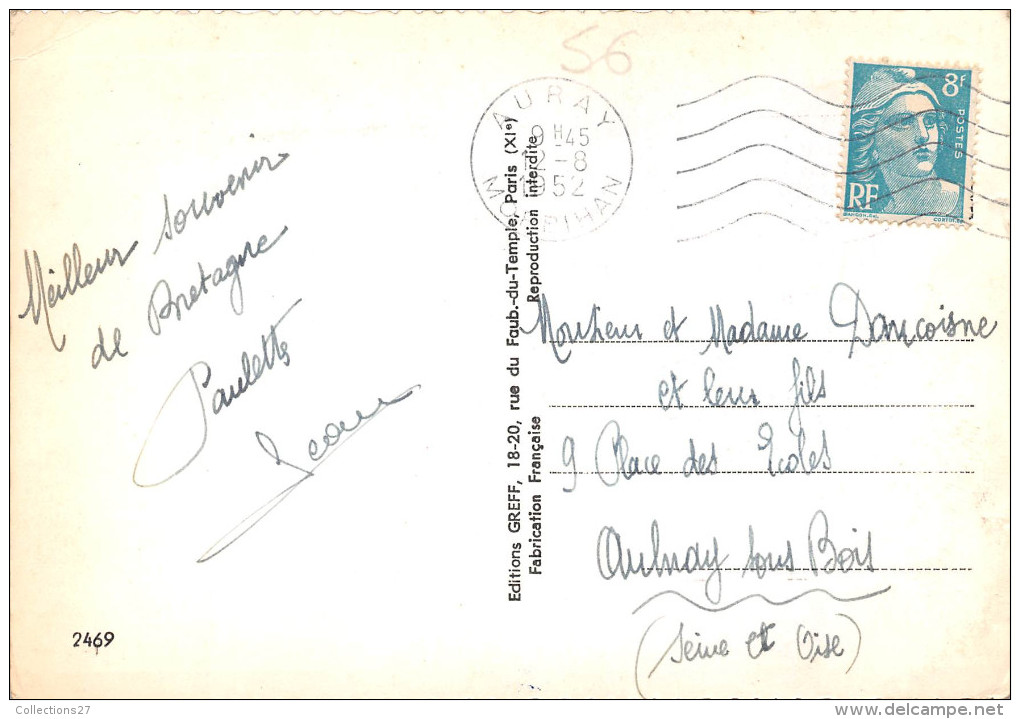 56
AURAY
9 H45
12-8
1952
MORBIHAN
8F
POSTES
RF
Meilleur souvenir
de Bretagne
Paulette
Jean
Editions GREFF, 18-20, rue du Faub.-du-Temple, Paris (XIe)
Fabrication Française Reproduction interdite
Monsieur et Madame Dancoisne
et leur fils
9 Place des Ecoles
Aulnay sous Bois
(Seine et Oise)
2469
Collections27
www.delcampe.net